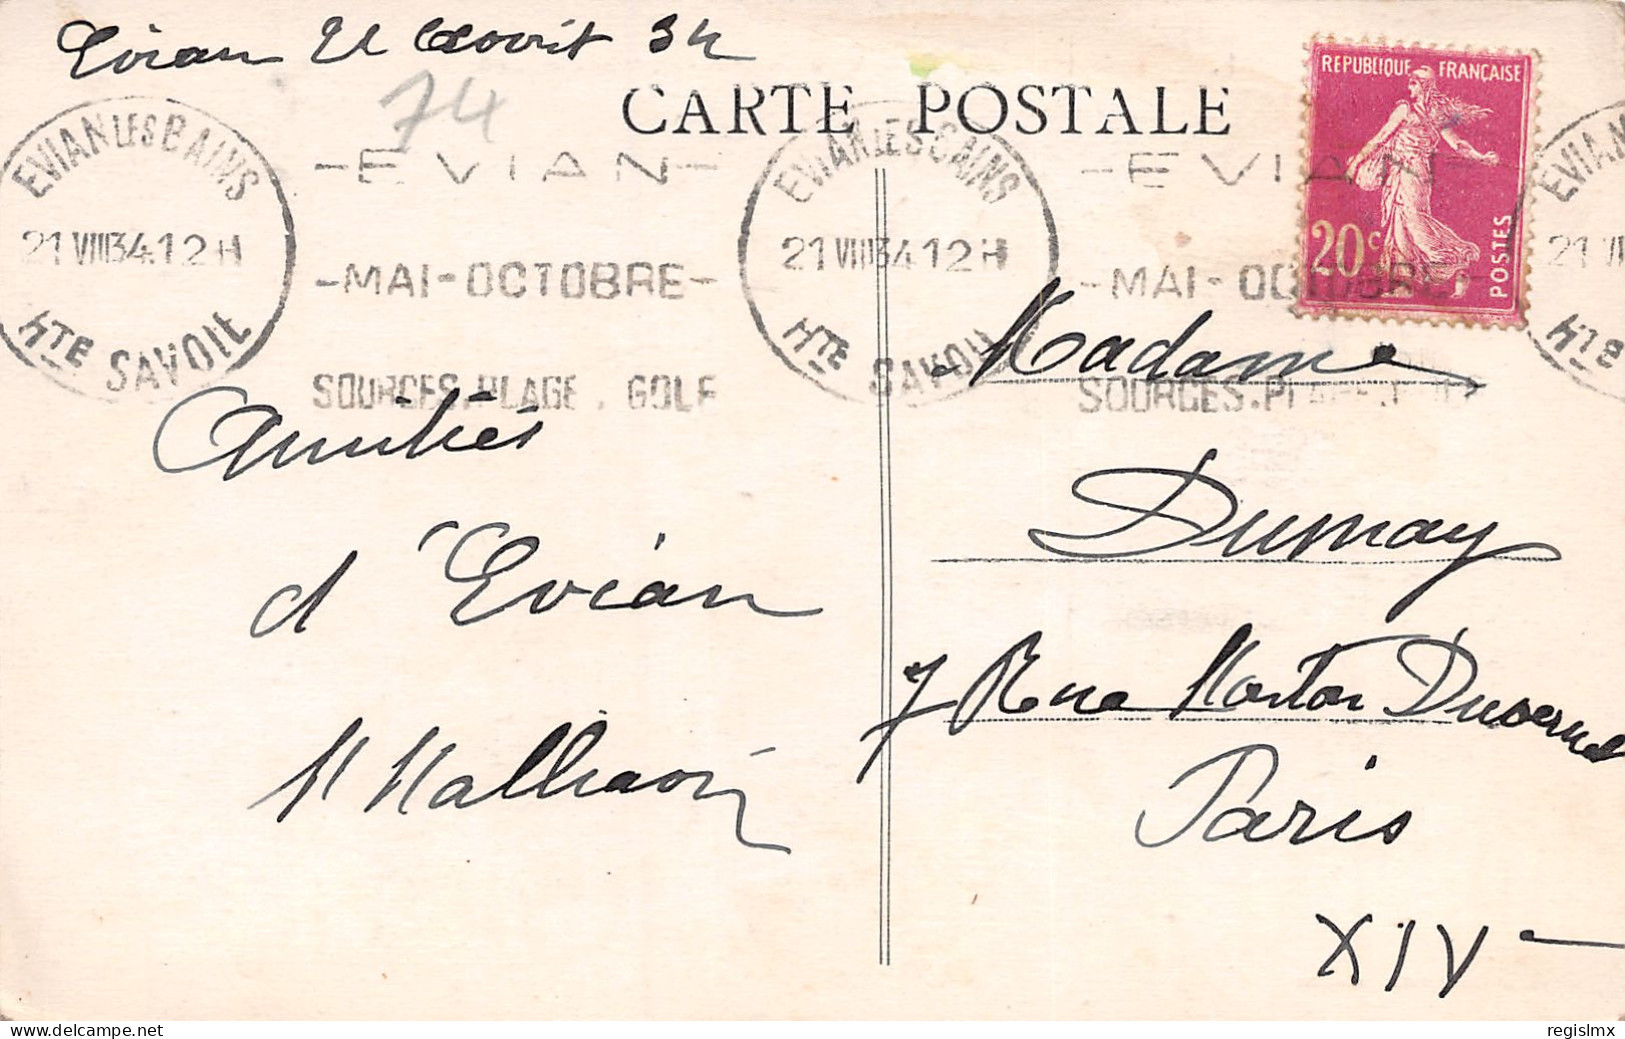 Evian 21 Aout 34
74
CARTE POSTALE
REPUBLIQUE FRANÇAISE
20c
POSTES
EVIAN LES BAINS
21 VIII 34 12 H
HTE SAVOIE
- EVIAN -
- MAI - OCTOBRE -
SOURCES. PLAGE. GOLF
EVIAN LES BAINS
21 VIII 34 12 H
HTE SAVOIE
- EVIAN -
- MAI - OCTOBRE -
SOURCES. PLAGE.
EVIAN
21 VI
HTE
Amitiés
d'Evian
Madame
Dumay
7 Rue Morton Duvernet
Paris
XIV -
www.delcampe.net
regislmx